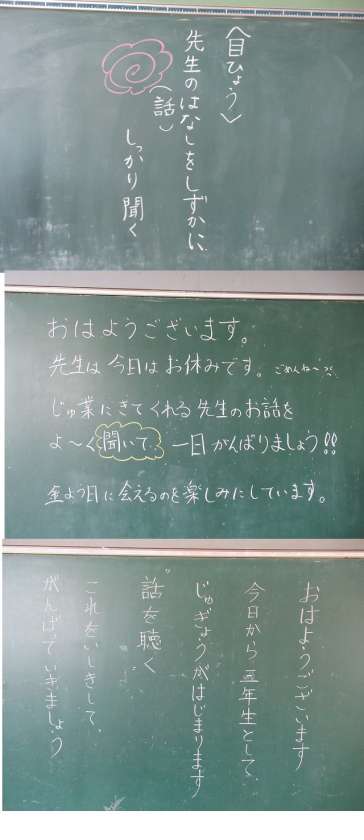 〈目ひょう〉
先生のはなしをしずかに、
（話）
しっかり聞く
おはようございます。
先生は今日はお休みです。ごめんね〜
じゅ業にきてくれる先生のお話を
よ〜く聞いて、一日がんばりましょう!!
金よう日に会えるのを楽しみにしています。
おはようございます
今日から五年生として、
じゅぎょうがはじまります
"話を聴く
これをいしきして、
がんばっていきましょう